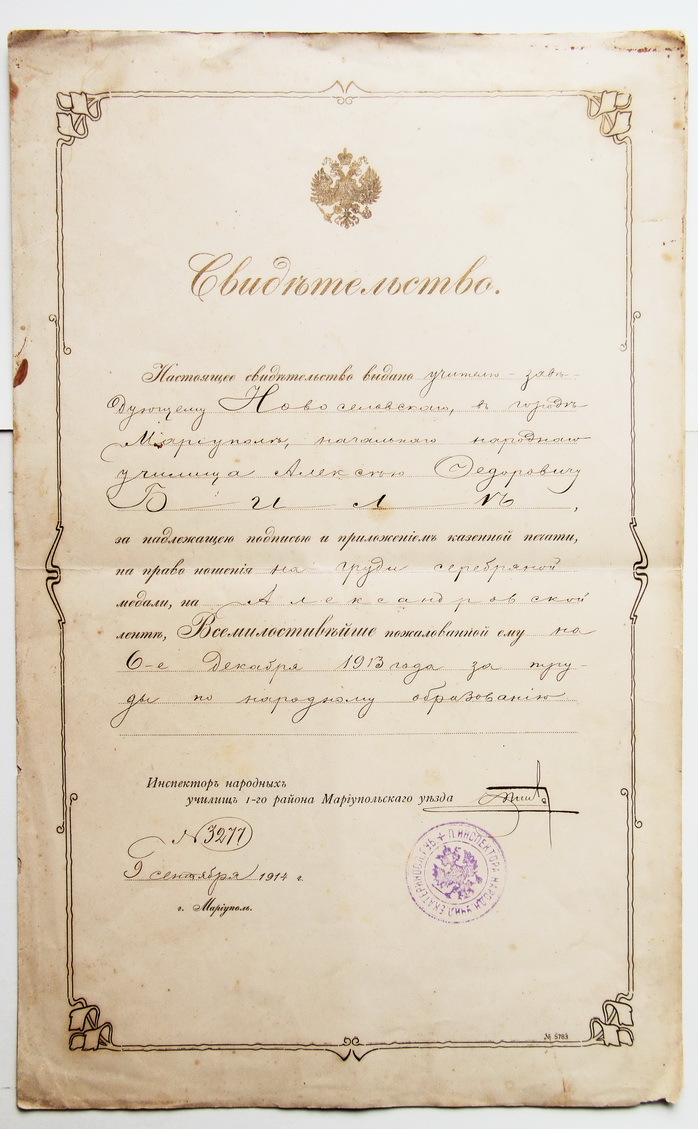 Свидѣтельство.
Настоящее свидѣтельство выдано учителю-завѣ-
дующему Новосельскаго, въ городѣ
Маріуполѣ, начальнаго народнаго
училища Алексѣю Ѳедоровичу
Б И Л ѣ,
за надлежащею подписью и приложеніемъ казенной печати,
на право ношенія на груди серебряной
медали, на Александровской
лентѣ, Всемилостивѣйше пожалованной ему на
6-е Декабря 1913 года за тру-
ды по народному образованію
Инспекторъ народныхъ
училищъ 1-го района Маріупольскаго уѣзда
№ 3277
9 сентября 1914 г.
г. Маріуполь.
ИНСПЕКТОРА НАРОДН. УЧИЛ. ЕКАТЕРИНОСЛ. ГУБ.
№ 5783